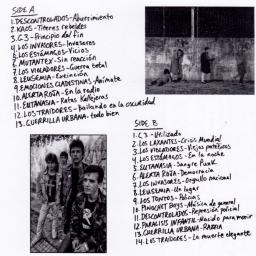 SIDE A
1. DESCONTROLADOS-Aburrimiento
2. KAOS-Títeres rebeldes
3. C3-Principio del fin
4. LOS INVASORES-Invasores
5. LOS ESTÉMAGOS-Vicios
6. MUTANTEX-Sin reacción
7. LOS VIOLADORES-Guerra total
8. LEUSEMIA-Exctinción
9. EMOCIONES CLADESTINAS-Animate
10. ALERTA ROJA-En la radio
11. EUTANASIA-Ratas Kallejeras
12. LOS TRAIDORES-Bailando en la oscuridad
13. GUERRILLA URBANA-todo bien
SIDE B
1. C3-Utilizada
2. LOS LAXANTES-Crisis Mundial
3. LOS VIOLADORES-Viejos patéticos
4. LOS ESTÉMAGOS-En la noche
5. EUTANASIA-Sangre Punk
6. ALERTA ROJA-Democracia
7. LOS INVASORES-Orgullo nacional
8. LEUSEMIA-Un lugar
9. LOS TONTOS-Policias
10. PINOCHET BOYS-Música de general
11. DESCONTROLADOS-Represión policial
12. PARALISIS INFANTIL-Nacido para morir
13. GUERRILLA URBANA-RAZZIA
14. LOS TRAIDORES-La muerte elegante